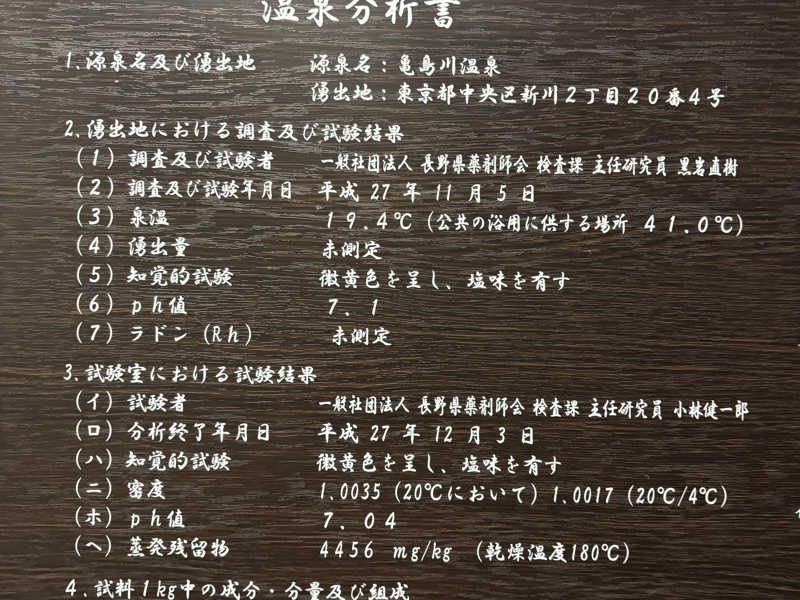 温泉分析書
1.源泉名及び湧出地 源泉名：亀島川温泉
湧出地：東京都中央区新川２丁目２０番４号
2.湧出地における調査及び試験結果
（1）調査及び試験者 一般社団法人 長野県薬剤師会 検査課 主任研究員 黒岩直樹
（2）調査及び試験年月日 平成 27 年 11 月 5 日
（3）泉温 １９.４℃（公共の浴用に供する場所 ４１.０℃）
（4）湧出量 未測定
（5）知覚的試験 微黄色を呈し、塩味を有す
（6）ｐｈ値 ７．１
（7）ラドン（Rh） 未測定
3.試験室における試験結果
（イ）試験者 一般社団法人 長野県薬剤師会 検査課 主任研究員 小林健一郎
（ロ）分析終了年月日 平成 27 年 12 月 3 日
（ハ）知覚的試験 微黄色を呈し、塩味を有す
（ニ）密度 1.0035（20℃において）1.0017（20℃/4℃）
（ホ）ｐｈ値 ７．０４
（ヘ）蒸発残留物 4456 mg/kg （乾燥温度180℃）
4.試料1kg中の成分・分量及び組成